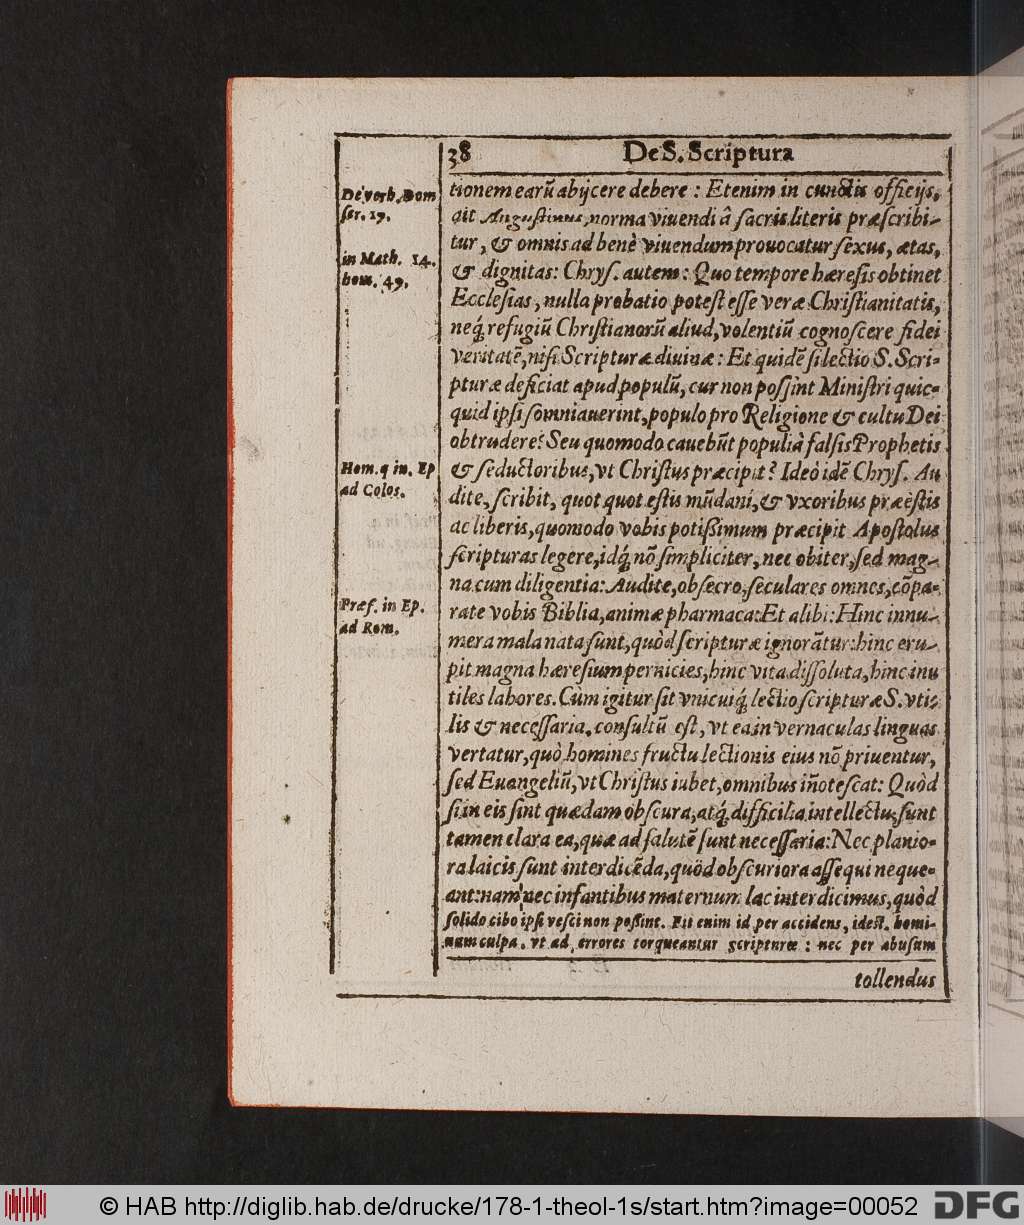 38 De S. Scriptura
tionem earũ abijcere debere : Etenim in cunctis officijs,
ait Augustinus, norma viuendi â sacris literis præscribi-
tur, & omnis ad benè viuendum prouocatur sexus, ætas,
& dignitas: Chrys. autem: Quo tempore hæresis obtinet
Ecclesias, nulla probatio potest esse veræ Christianitatis,
neq́; refugiũ Christianorũ aliud, volentiũ cognoscere fidei
veritatẽ, nisi Scripturæ diuinæ: Et quidẽ si lectio S. Scri-
pturæ deficiat apud populũ, cur non possint Ministri quic-
quid ipsi somniauerint, populo pro Religione & cultu Dei
obtrudere? Seu quomodo cauebũt populi à falsis Prophetis
& seductoribus, vt Christus præcipit? Ideò idẽ Chrys. Au
dite, scribit, quot quot estis mũdani, & vxoribus præestis
ac liberis, quomodo vobis potißimum præcipit Apostolus
scripturas legere, idq́; nõ simpliciter, nec obiter, sed mag-
na cum diligentia: Audite, obsecro, seculares omnes, cõpa-
rate vobis Biblia, animæ pharmaca: Et alibi: Hinc innu-
mera mala nata sunt, quòd scripturæ ignorãtur: hinc eru-
pit magna hæresium pernicies, hinc vita dissoluta, hinc inu
tiles labores. Cùm igitur sit vnicuiq́; lectio scripturæ S. vti-
lis & necessaria, consultũ est, vt ea in vernaculas linguas
vertatur, quò homines fructu lectionis eius nõ priuentur,
sed Euangeliũ, vt Christus iubet, omnibus iñotescat: Quòd
si in eis sint quædam obscura, atq́; difficilia intellectu, sunt
tamen clara ea, quæ ad salutẽ sunt necessaria: Nec planio-
ra laicis sunt interdicẽda, quòd obscuriora assequi neque-
ant: nam nec infantibus maternum lac interdicimus, quòd
solido cibo ipsi vesci non possint. Fit enim id per accidens, idest. homi-
num culpa. vt ad errores torqueantur scripturæ : nec per abusum
tollendus
De verb. Dom
ser. 19.
in Math. 14.
hom. 49.
Hom. 9 in. Ep
ad Colos.
Præf. in Ep.
ad Rom.
© HAB http://diglib.hab.de/drucke/178-1-theol-1s/start.htm?image=00052
DFG